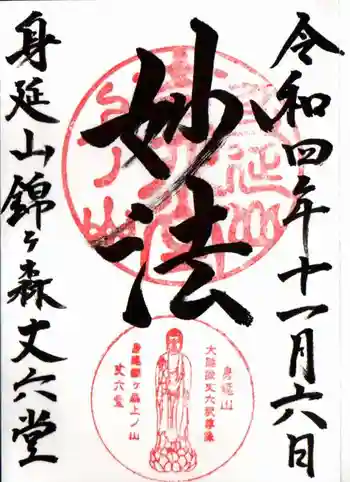 令和四年十一月六日
妙法
身延山
大本堂丈六釈尊像
身延錦ヶ森上ノ山
丈六堂
身延山錦ヶ森丈六堂